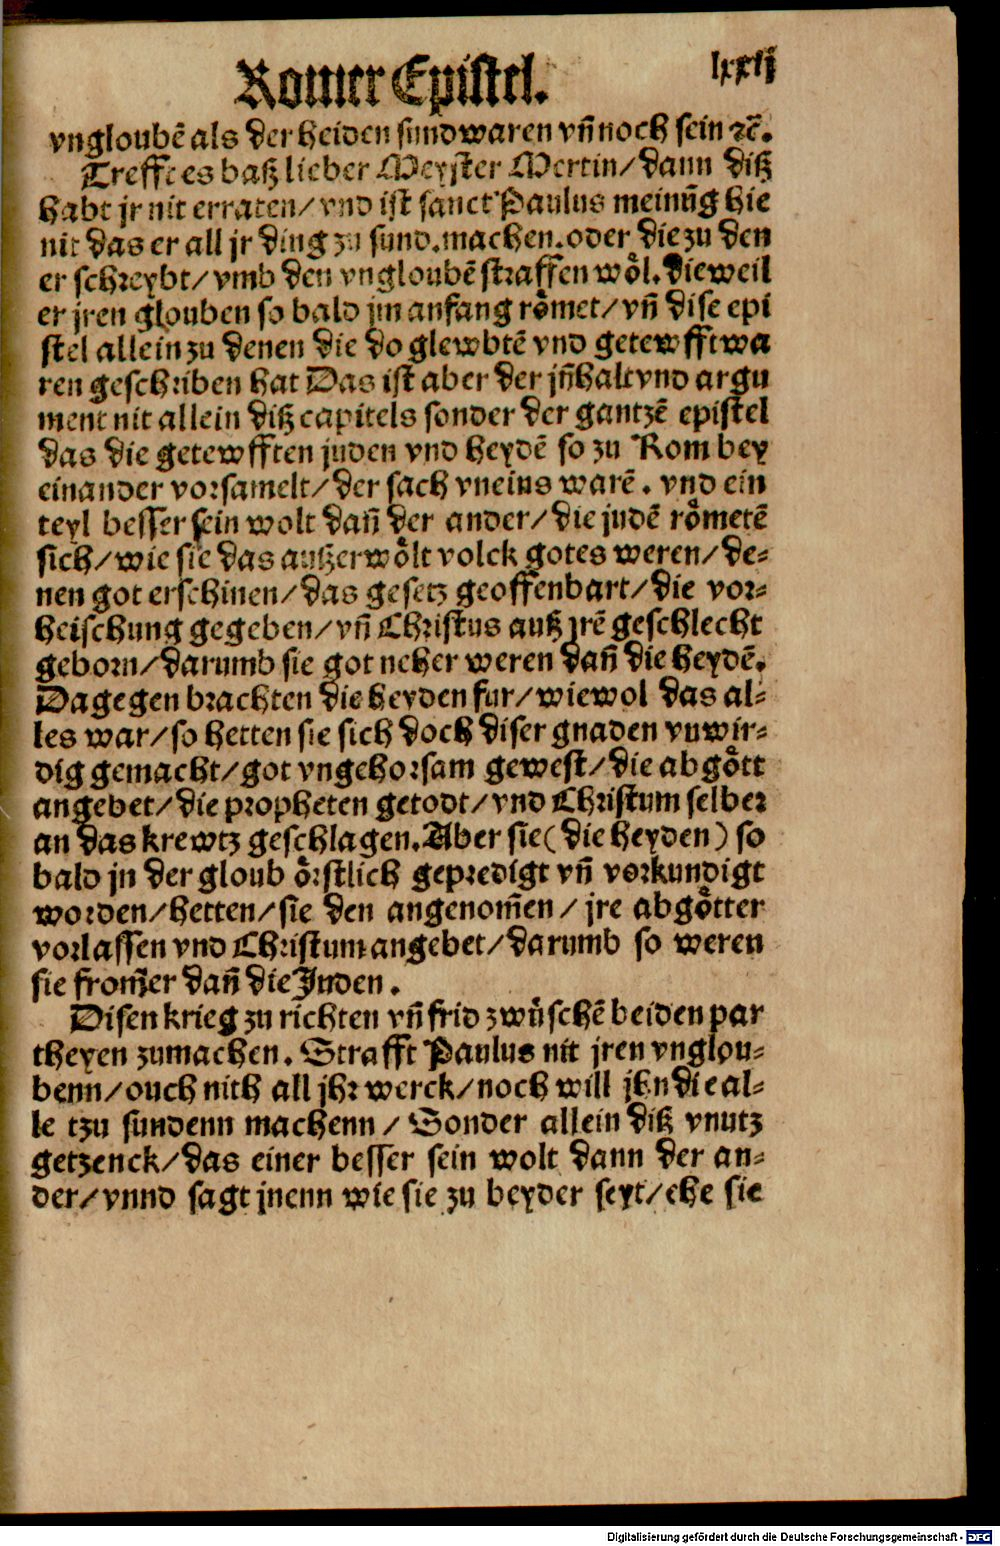 Romer Epistel. lxxij
vngloubē als der heiden sund waren vn̄ noch sein ꝛc̄.
Trefft es baß lieber Meyster Mertin/dann diß
habt jr nit erraten/vnd ist sanct Paulus meinūg hie
nit das er all jr ding zu sund.machen.oder die zu den
er schreybt/vmb den vngloubē straffen wöl.dieweil
er jren glouben so bald jm anfang römet/vn̄ dise epi
stel allein zu denen die do glewbtē vnd getewfft wa
ren geschriben hat Das ist aber der jn̄halt vnd argu
ment nit allein diß capitels sonder der gantzē epistel
das die getewfften juden vnd heydē so zu Rom bey
einander vorsamelt/der sach vneins warē. vnd ein
teyl besser sein wolt dan̄ der ander/die judē römetē
sich/wie sie das außerwölt volck gotes weren/de-
nen got erschinen/das gesetz geoffenbart/die vor-
heischung gegeben/vn̄ Christus auß jrē geschlecht
geborn/darumb sie got neher weren dan̄ die heydē.
Dagegen brachten die heyden fur/wiewol das al-
les war/so hetten sie sich doch diser gnaden vnwir-
dig gemacht/got vngehorsam gewest/die abgött
angebet/die propheten getodt/vnd Christum selber
an das krewtz geschlagen.Aber sie(die heyden) so
bald jn der gloub örstlich gepredigt vn̄ vorkundigt
worden/hetten/sie den angenom̄en/ jre abgötter
vorlassen vnd Christum angebet/darumb so weren
sie from̄er dan̄ die Juden.
Disen krieg zu richten vn̄ frid zwüschē beiden par
theyen zumachen. Strafft Paulus nit jren vnglou-
benn/ouch nith all jhr werck/noch will jhn die al-
le tzu sundenn machenn/ Sonder allein diß vnutz
getzenck/das einer besser sein wolt dann der an-
der/vnnd sagt jnenn wie sie zu beyder seyt/ehe sie
Digitalisierung gefördert durch die Deutsche Forschungsgemeinschaft - DFG